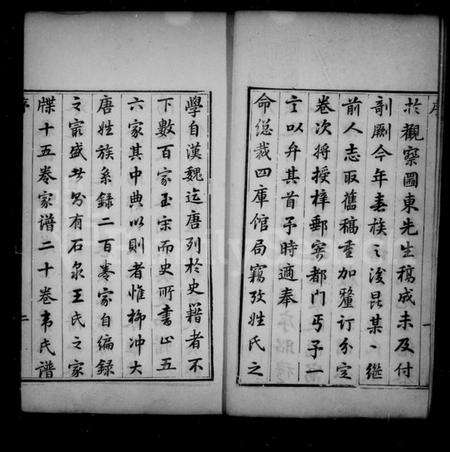 序
於觀察圖東先生稿成未及付
剞劂今年春族之後昆某〻繼
前人志取舊稿重加釐訂分定
卷次將授梓郵寄都門丐予一
言以弁其首予時適奉
命總裁四庫館局竊攷姓氏之
一
學自漢魏迄唐列於史籍者不
下數百家至宋而史所書止五
六家其中典以則者惟柳冲大
唐姓族系錄二百卷家自編錄
之最盛者則有石泉王氏之家
牒十五卷家譜二十卷韋氏譜
序
二